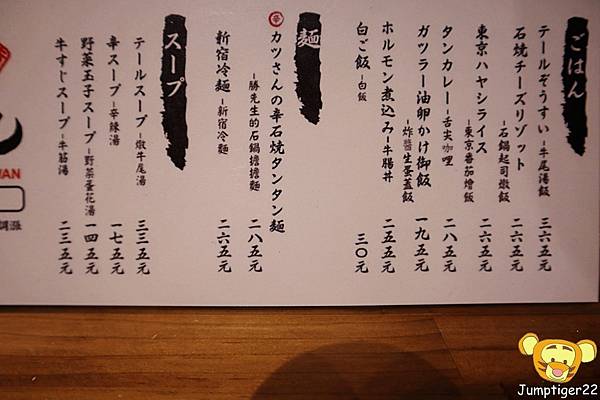 ごはん
テールぞうすい-牛尾湯飯
三六五元
石焼チーズリゾット
-石鍋起司燉飯
二六五元
東京ハヤシライス
-東京番茄燴飯
二六五元
タンカレー-舌尖咖哩
二八五元
ガツラー油卵かけ御飯
-炸醬生蛋蓋飯
一九五元
ホルモン煮込み-牛腸丼
二五五元
白ご飯-白飯
三〇元
麺
辛 カツさんの辛石焼タンタン麺
-勝先生的石鍋擔擔麵
二八五元
新宿冷麺-新宿冷麵
二六五元
スープ
テールスープ-燉牛尾湯
三三五元
辛スープ-辛辣湯
一七五元
野菜玉子スープ-野菜蛋花湯
一四五元
牛すじスープ-牛筋湯
二三五元
ん
WAN
調漲
Jumptiger22